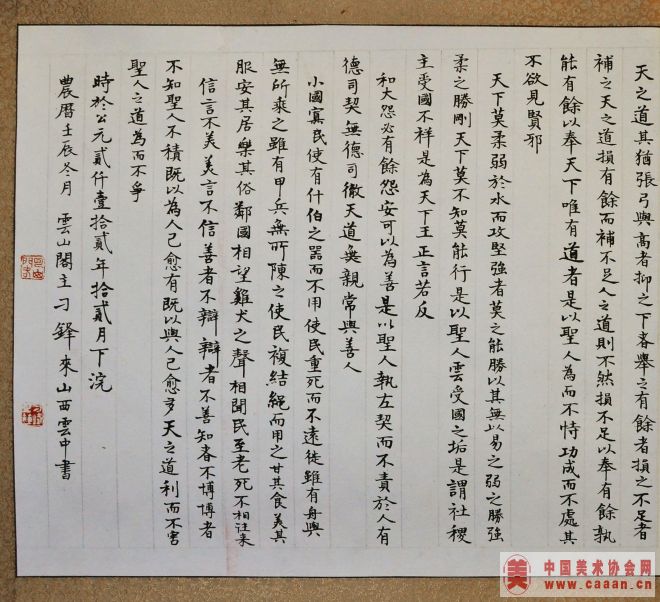 天之道其猶張弓與高者抑之下者舉之有餘者損之不足者
補之天之道損有餘而補不足人之道則不然損不足以奉有餘孰
能有餘以奉天下唯有道者是以聖人為而不恃功成而不處其
不欲見賢邪
天下莫柔弱於水而攻堅強者莫之能勝以其無以易之弱之勝強
柔之勝剛天下莫不知莫能行是以聖人雲受國之垢是謂社稷
主受國不祥是為天下王正言若反
和大怨必有餘怨安可以為善是以聖人執左契而不責於人有
德司契無德司徹天道無親常與善人
小國寡民使有什伯之器而不用使民重死而不遠徙雖有舟輿
無所乘之雖有甲兵無所陳之使民複結繩而用之甘其食美其
服安其居樂其俗鄰國相望雞犬之聲相聞民至老死不相往來
信言不美美言不信善者不辯辯者不善知者不博博者
不知聖人不積既以為人己愈有既以與人己愈多天之道利而不害
聖人之道為而不爭
時於公元貳仟壹拾貳年拾貳月下浣
農曆壬辰冬月雲山閣主刁鐸來山西雲中書
中国美术协会网
www.caaan.cn